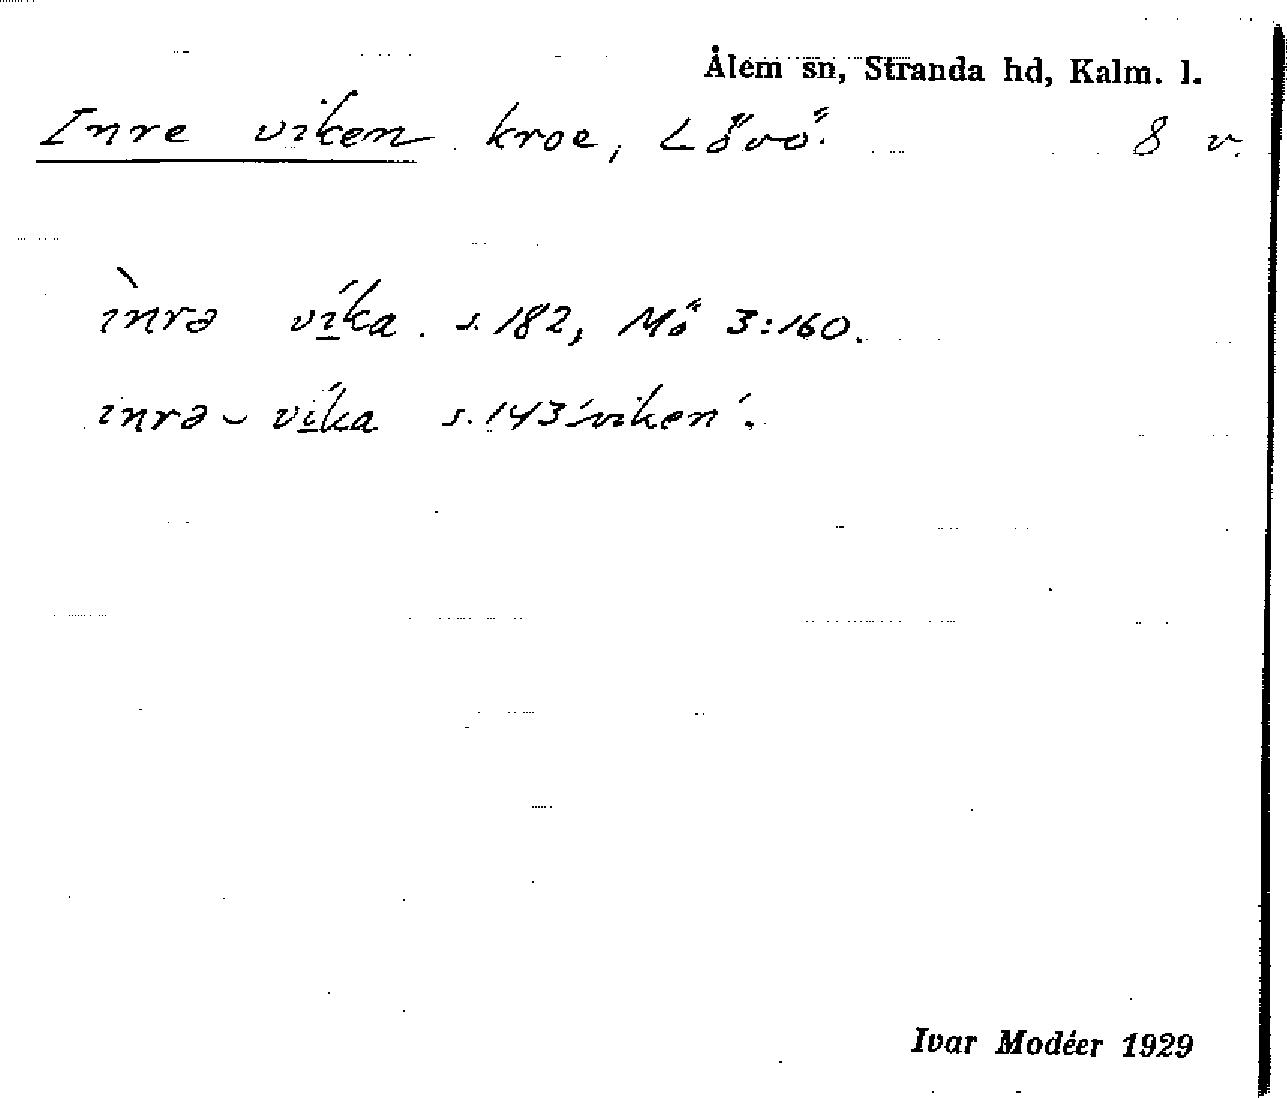 Ålem sn, Stranda hd, Kalm. l.
Inre viken kroe, Lövö. 8 v.
ìnrə ví̱ka. s. 182, Mö 3:160.
inrə-ví̱ka s. 143 'viken'.
Ivar Modéer 1929